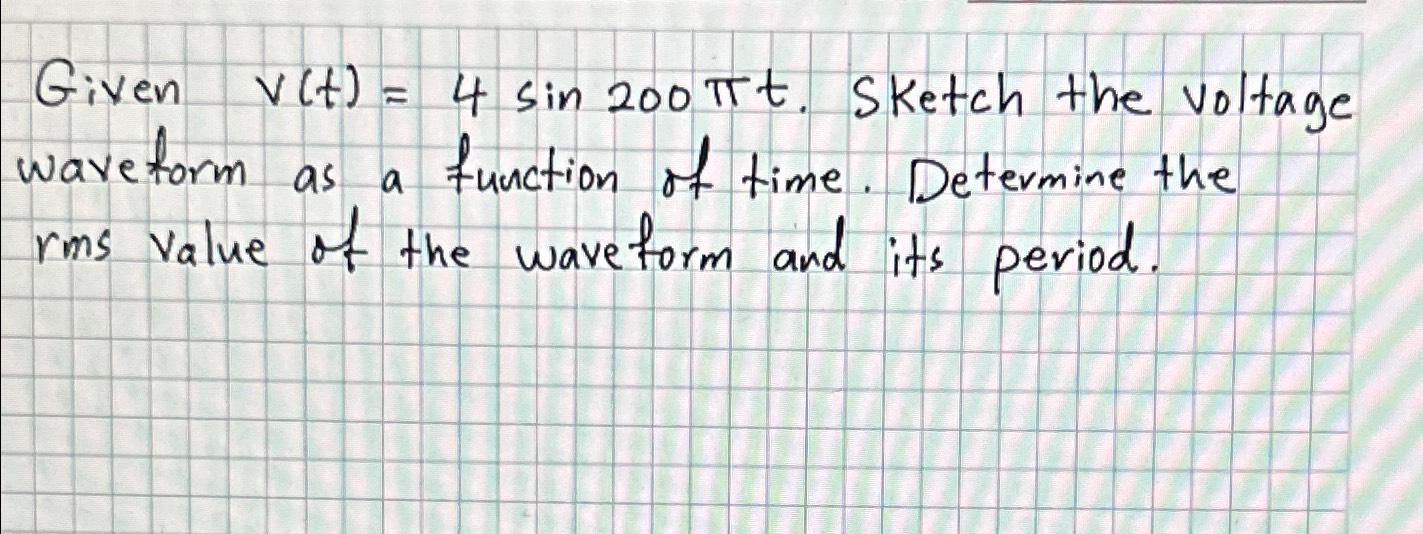 Given v(t) = 4 sin 200 πt. Sketch the voltage
waveform as a function of time. Determine the
rms value of the waveform and its period.